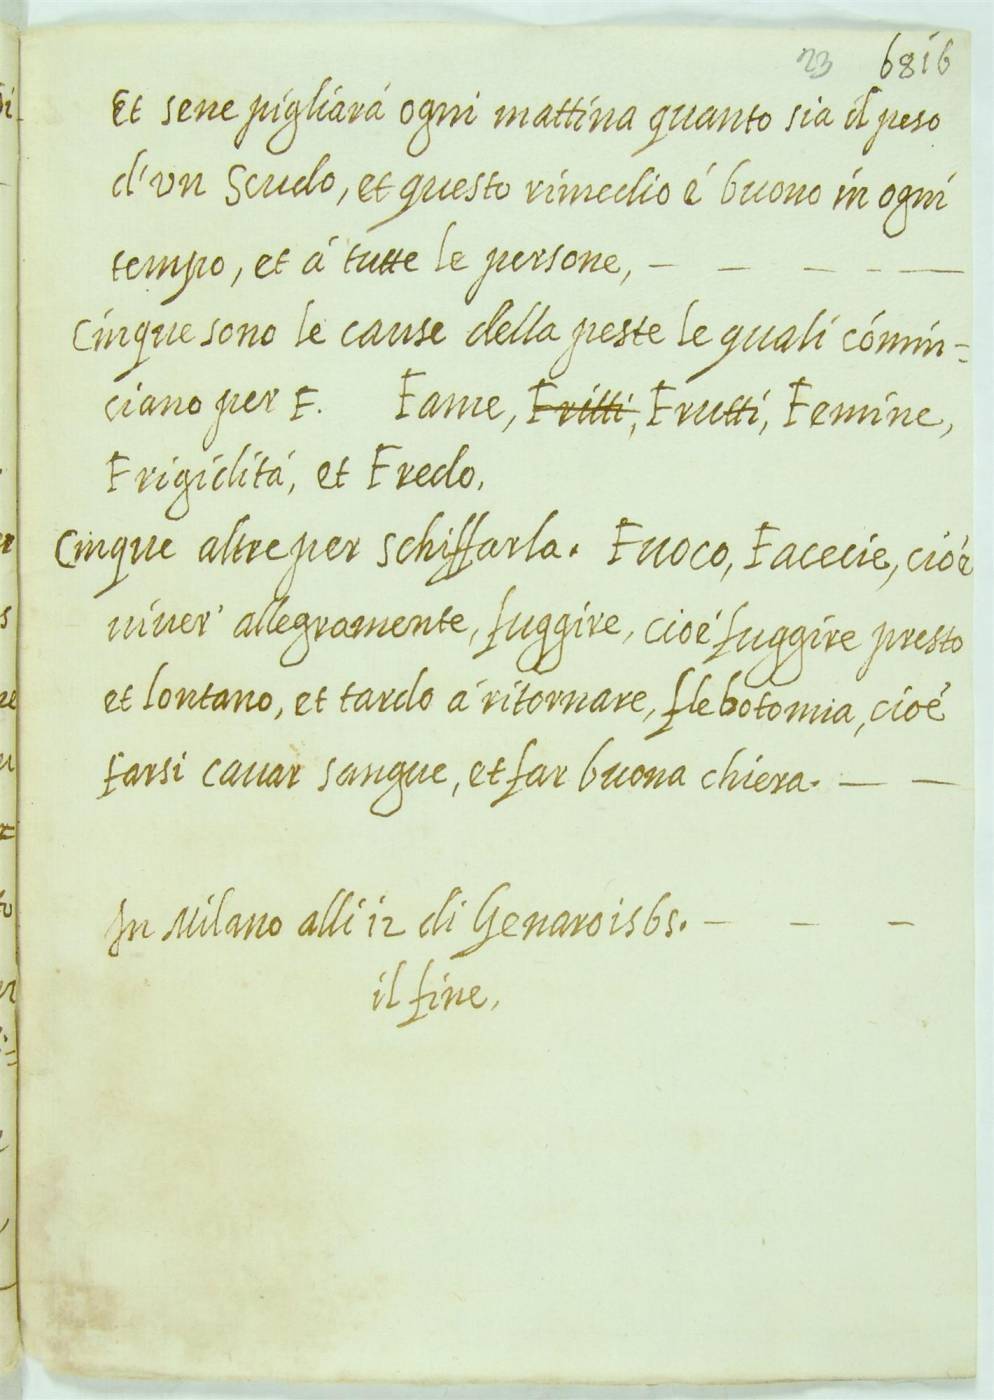 23 6816
Et sene pigliará ogni mattina quanto sia il peso
d'vn Scudo, et questo rimedio é buono in ogni
tempo, et á tutte le persone, — — — - —
Cinque sono le cause della peste le quali cómin=
ciano per F. Fame, Fritti, Frutti, Femine,
Frigiditá, et Fredo.
Cinque altre per schiffarla. Fuoco, Facecie, cioé
viuer' allegramente, fuggire, cioé fuggire presto
et lontano, et tardo á ritornare, flebotomia, cioé
farsi cauar sangue, et far buona chiera. — —
In Milano alli i2 di Genaro is6s. — — —
il fine,